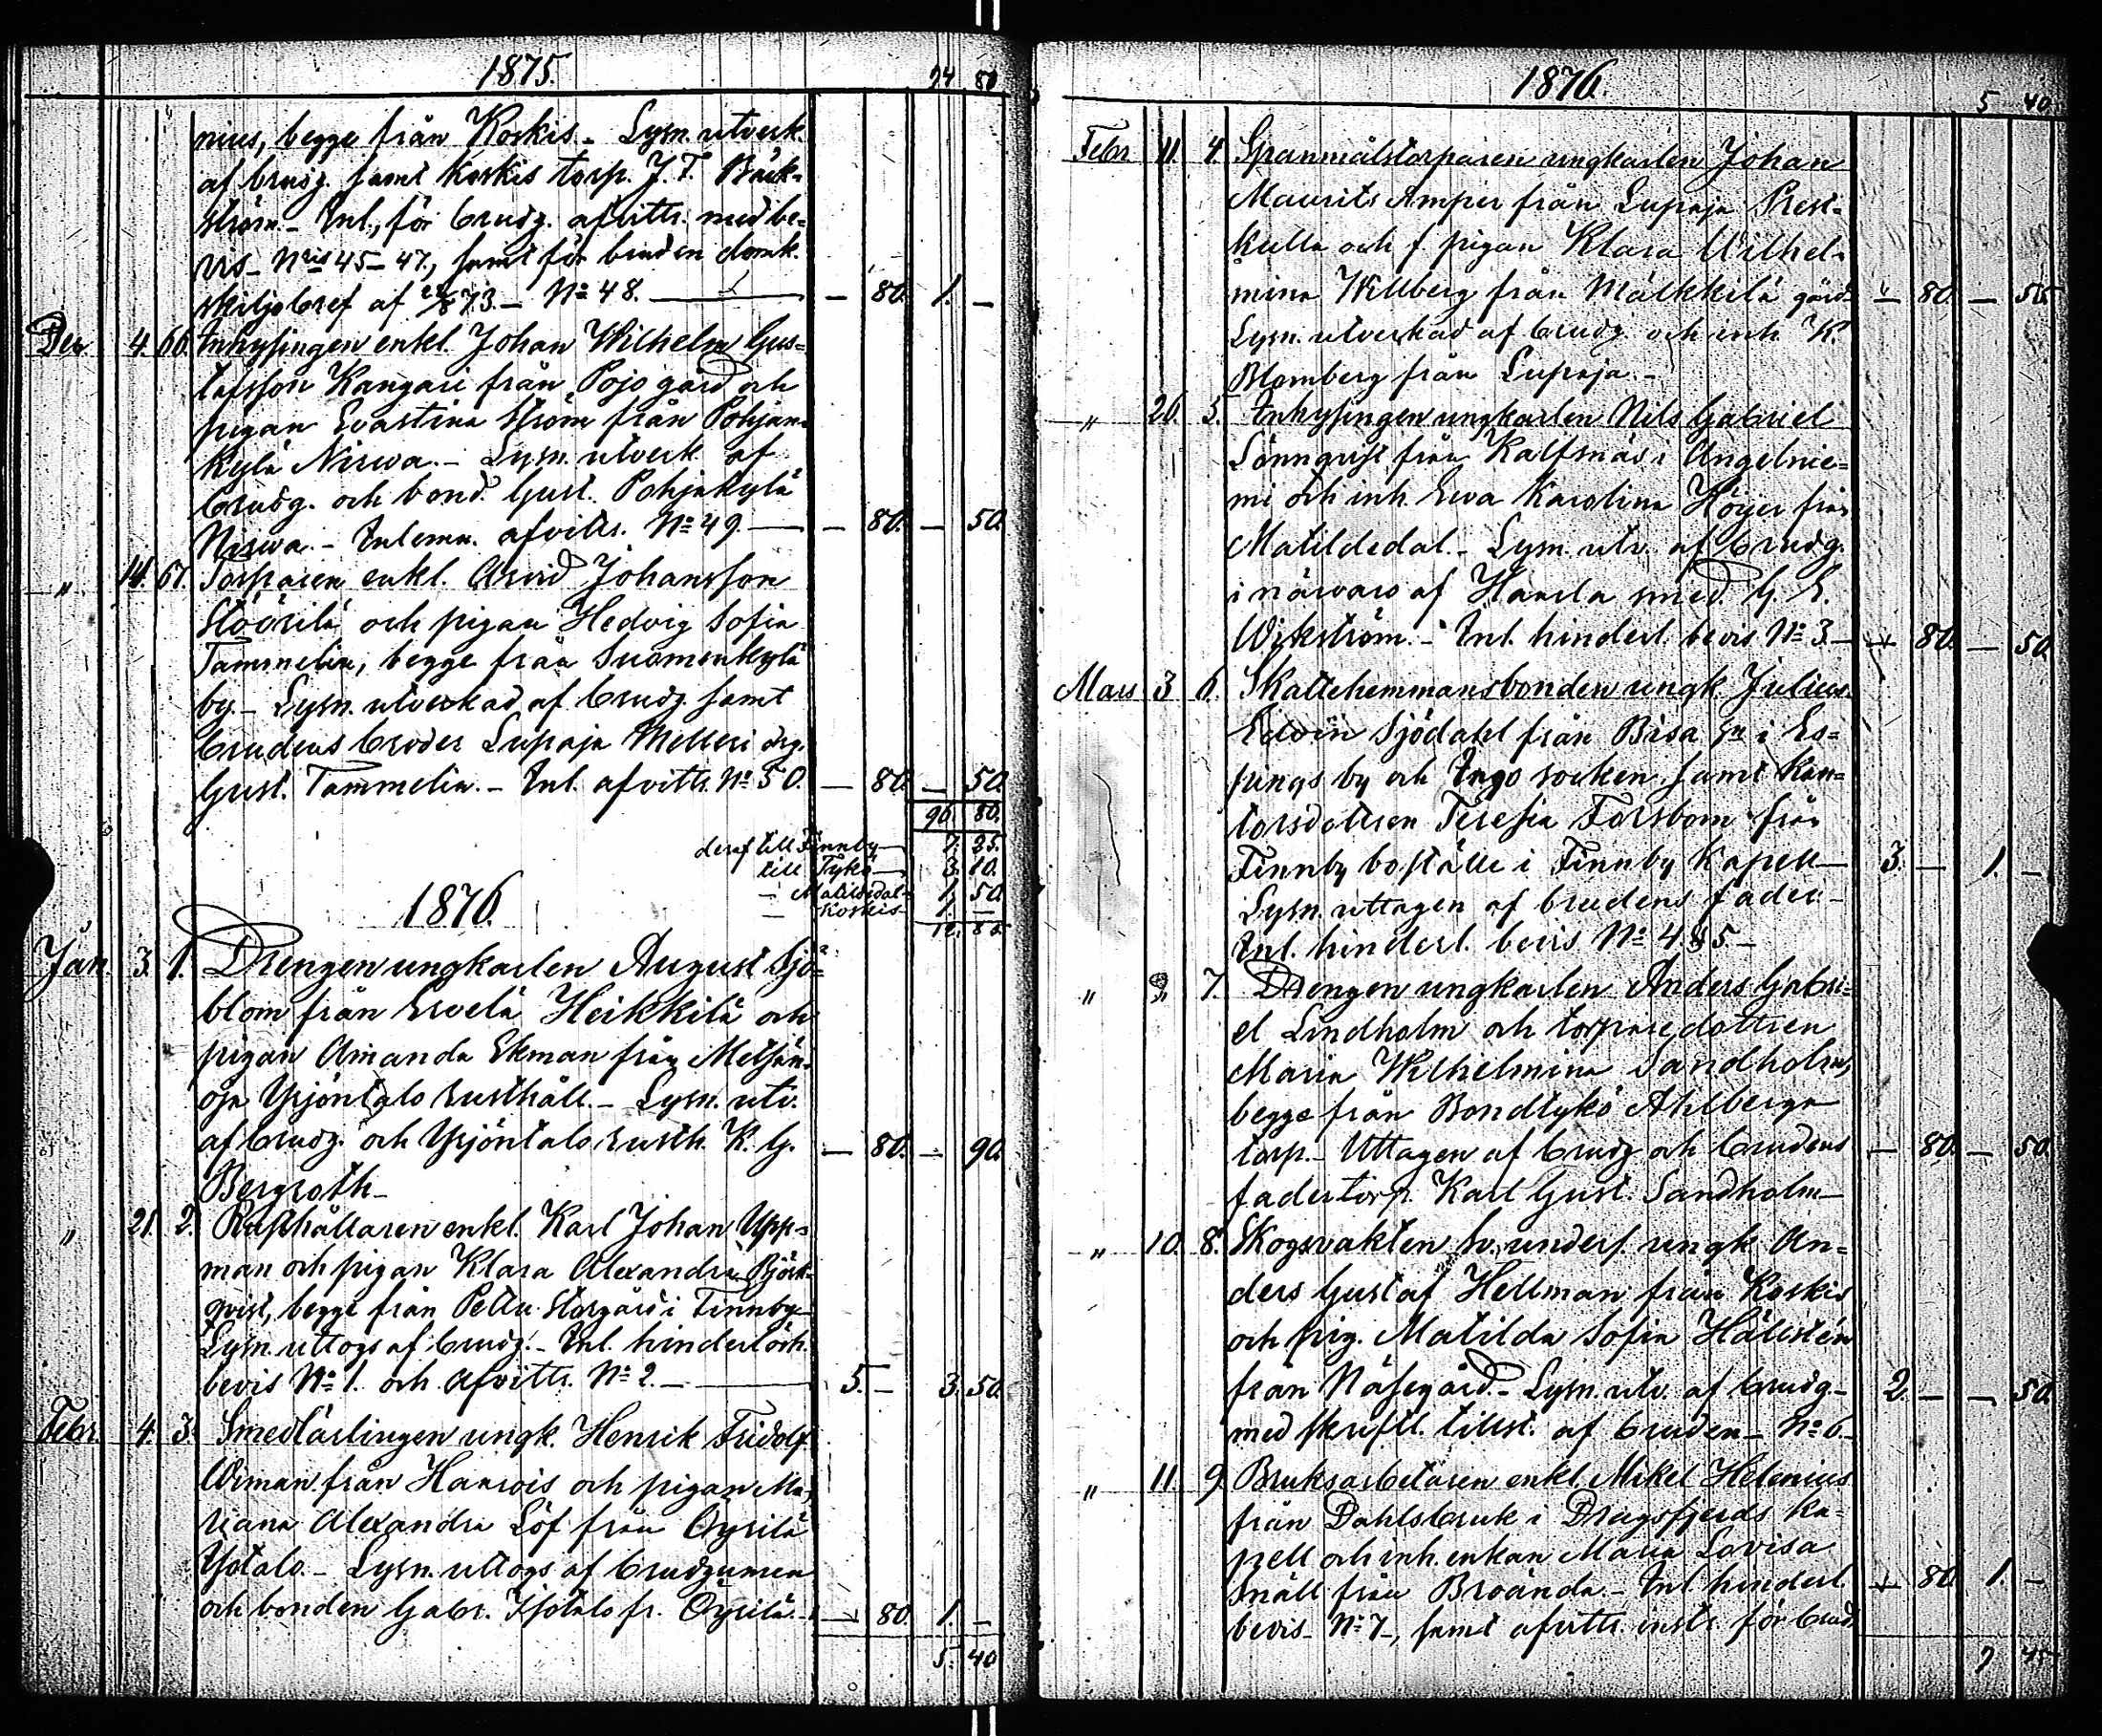 1875.
94 80
nius, begge från Koskis. Lysn. utverk.
af brudg. samt Koskis torp. J. T. Bäck-
ström. Inl., för brudg. afvittr. med be-
vis Nris 45-47, samt för bruden domk.
skiljobref af 73. - No 48. - 80. 1. -
Dec 4. 66. Inhysingen enkl. Johan Wilhelm Gus-
tafsson Kangari från Pojo gård och
pigan Evastina Ström från Pohjan-
kylä Niswa. - Lysn. utverk. af
brudg. och bond. Gust. Pohjakylä
Niswa. - Inlemn. afvittr. No 49. - 80. - 50.
" 11. 67. Torparen enkl. Arvid Johansson
Stöörilä och pigan Hedvig Sofia
Tammelin, begge från Suomenkylä
by. - Lysn. utverkad af brudg. samt
brudens broder Lupaja Melleri drg.
Gust. Tammelin. - Inl. afvittr. No 50. - 80. - 50.
96. 80.
deraf till Finnby 7. 25.
till Tykö 3. 10.
- Matildedal - 1. 50.
- Koskis - 1. -
12. 85
1876.
Jan. 3. 1. Drengen ungkarlen August Sjö-
blom från Ervelä Heikkilä och
pigan Amanda Ekman från Metsän-
oja Yrjöntalo rusthåll. - Lysn. utv.
af brudg. och Yrjöntalo rusth. K. G. - 80. - 90.
Bergroth -
" 21. 2. Rusthållaren enkl. Karl Johan Upp-
man och pigan Klara Alexandra Björk-
qvist, begge från Pettu Storgård i Finnby
Lysn. uttogs af brudg. - Inl. hinderlösh.
bevis No 1. och afvittr. No 2. - 5. - 3. 50.
Febr. 4. 3. Smedlärlingen ungk. Henrik Fridolf
Wiman från Hanrois och pigan Ma-
riana Alexandra Löf från Öyrilä
Yötalo. - Lysn. uttogs af brudgumen
och bonden Gabr. Isotalo fr. Öyrilä. - 80. 1. -
5. 40
1876.
5 40
Febr 11. 4. Spanmålstorparen ungkarlen Johan
Maurits Amper från Lupaja Prest-
kulla och f. pigan Klara Wilhel-
mina Willberg från Mälkkilä gård - 80. - 55
Lysn. utverkad af brudg. och inh. K.
Blomberg från Lupaja. -
" 26. 5. Inhysingen ungkarlen Nils Gabriel
Lönnqvist från Kalfsnäs i Angelnie-
mi och inh. Ewa Karolina Höijer från
Matildedal. - Lysn. utv. af brudg.
i närvaro af Haarla smed. G. E.
Wikström. - Inl. hinderl. bevis No 3 - 80. - 50.
Mars 3 6. Skattehemmansbonden ungk. Julius
Edvin Sjödahl från Bäsa gn i Es-
pings by och Ingo socken samt kan-
torsdottren Teresia Forsbom från
Finnby boställe i Finnby Kapell 3. - 1. -
Lysn. uttagen af brudens fader. -
Inl. hinderl. bevis No 4 & 5 -
" " 7. Drengen ungkarlen Anders Gabri-
el Lindholm och torparedottren
Maria Wilhelmina Sandholm,
begge från Bondtykö Ahlberga
torp. - Uttagen af brudg och brudens - 80. - 50.
fader torp. Karl Gust. Sandholm -
" 10. 8. Skogsvakten Sv. unders. ungk An-
ders Gustaf Hellman från Koskis
och pig. Matilda Sofia Hälistén
från Näsegård. - Lysn. utv. af brudg - 2. - - 50.
med skriftl. tillst. af bruden - No 6. -
" 11. 9. Bruksarbetaren enkl. Mikel Helenius
från Dahlsbruk i Dragsfjerds ka-
pell och inh. enkan Maria Lovisa
Snäll från Broända. - Inl. hinderl. - 80. 1. -
bevis No 7 -, samt afvittr. instr. för brud
9 45